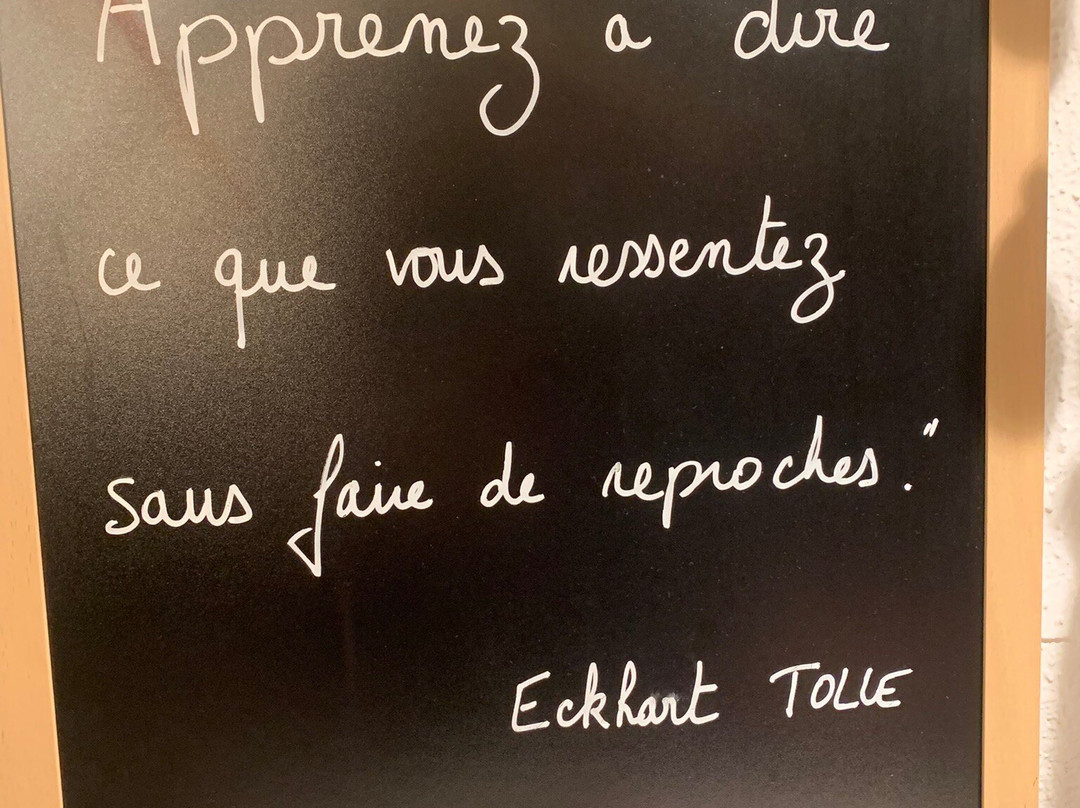 Apprenez a dire
ce que vous ressentez
sans faire de reproches."
Eckhart TOLLE